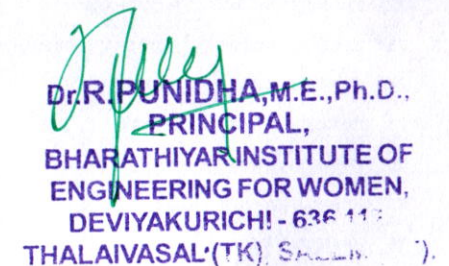 Dr.R.PUNIDHA,M.E.,Ph.D.,
PRINCIPAL,
BHARATHIYAR INSTITUTE OF
ENGINEERING FOR WOMEN,
DEVIYAKURICHI - 636
THALAIVASAL (TK)